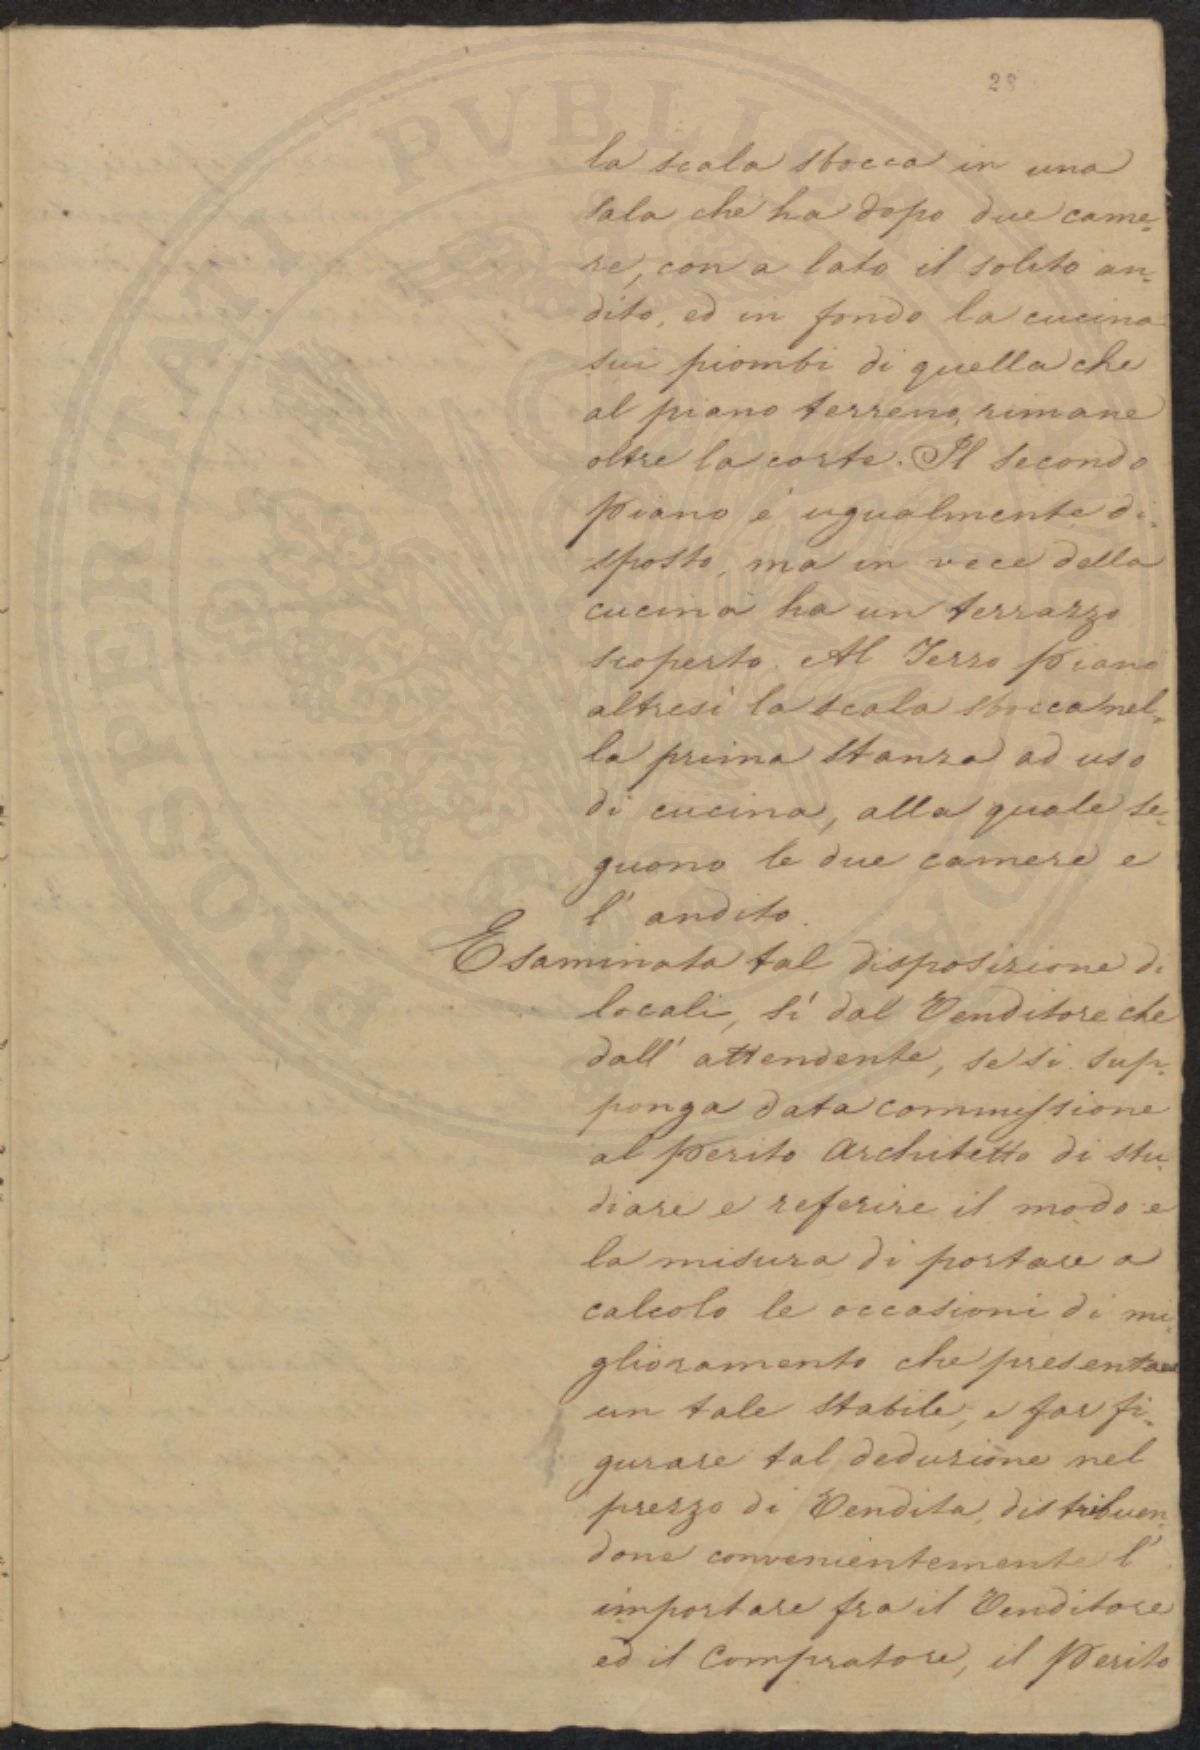 28
la scala sbocca in una
sala che ha dopo due came-
re, con a lato il solito an-
dito, ed in fondo la cucina
sui piombi di quella che
al piano terreno, rimane
oltre la corte. Il secondo
piano è ugualmente di-
sposto, ma in vece della
cucina ha un terrazzo
scoperto. Al Terzo piano
altresì la scala sbocca nel-
la prima stanza ad uso
di cucina, alla quale se-
guono le due camere e
l'andito.
Esaminata tal disposizione di
locali, sì dal Venditore che
dall'attendente, se si sup-
ponga data commissione
al Perito Architetto di stu-
diare e referire il modo e
la misura di portare a
calcolo le occasioni di mi-
glioramento che presenta
un tale stabile, e far fi-
gurare tal deduzione nel
prezzo di Vendita, distribuen-
done convenientemente l'
importare fra il Venditore
ed il Compratore, il Perito
PROSPERITATI PUBLICAE